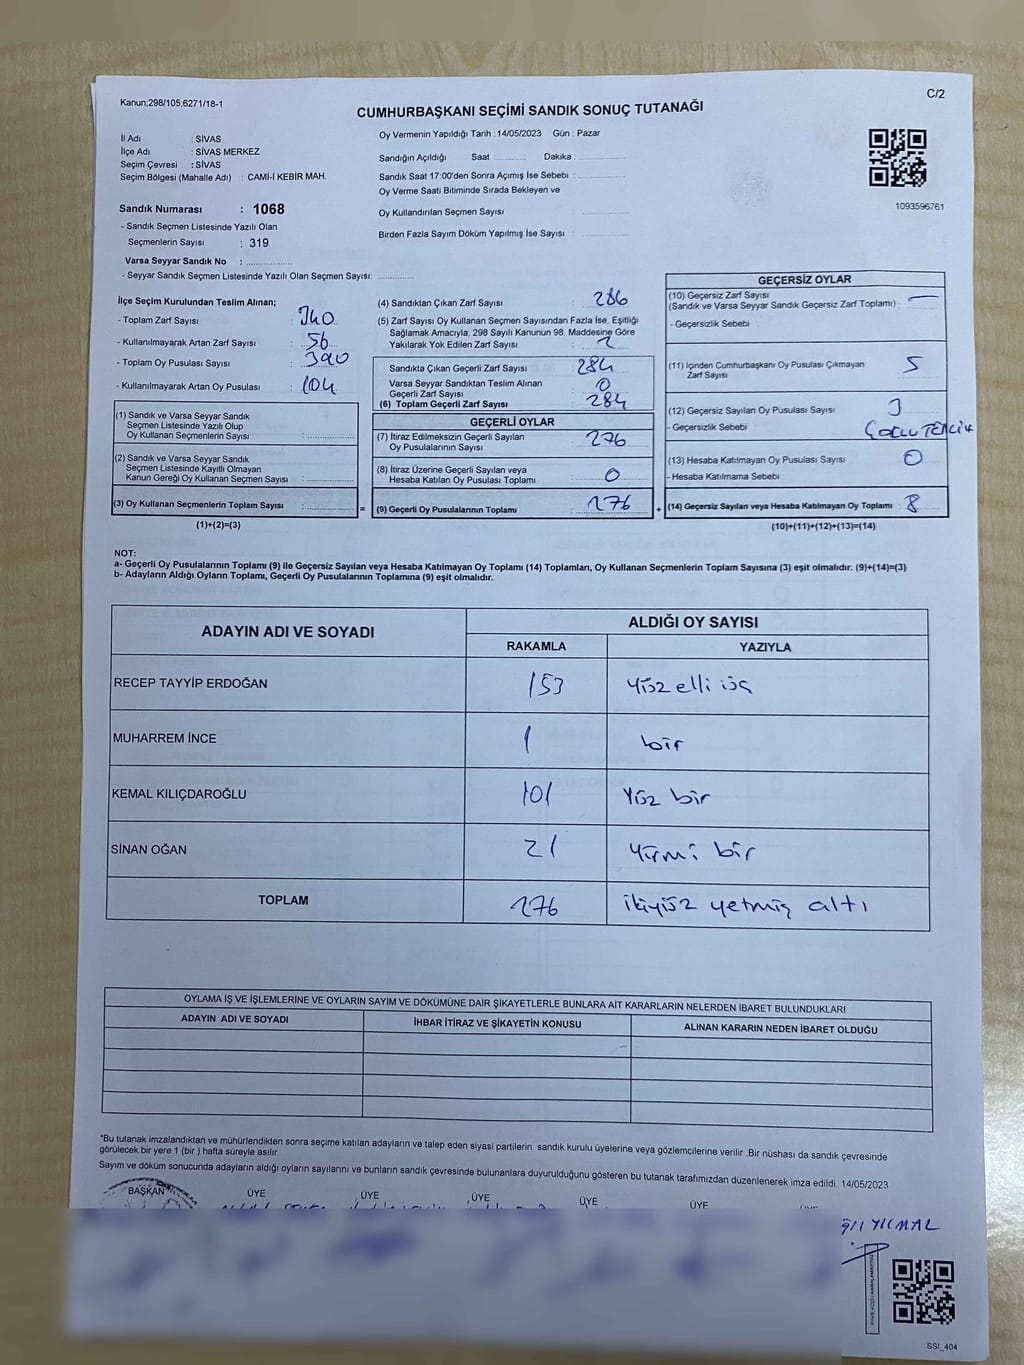 Kanun;298/105;6271/18-1
C/2
CUMHURBAŞKANI SEÇİMİ SANDIK SONUÇ TUTANAĞI
İl Adı : SİVAS
İlçe Adı : SİVAS MERKEZ
Seçim Çevresi : SİVAS
Seçim Bölgesi (Mahalle Adı) : CAMİ-İ KEBİR MAH.
Sandık Numarası : 1068
- Sandık Seçmen Listesinde Yazılı Olan
Seçmenlerin Sayısı : 319
Varsa Seyyar Sandık No : ................
- Seyyar Sandık Seçmen Listesinde Yazılı Olan Seçmen Sayısı: ............
Oy Vermenin Yapıldığı Tarih : 14/05/2023 Gün : Pazar
Sandığın Açıldığı Saat :.......... Dakika : ...............
Sandık Saat 17:00'den Sonra Açımış İse Sebebi : ...............
Oy Verme Saati Bitiminde Sırada Bekleyen ve
Oy Kullandırılan Seçmen Sayısı ...............
Birden Fazla Sayım Döküm Yapılmış İse Sayısı : ...............
1093596761
İlçe Seçim Kurulundan Teslim Alınan;
- Toplam Zarf Sayısı : 340
- Kullanılmayarak Artan Zarf Sayısı : 56
- Toplam Oy Pusulası Sayısı : 390
- Kullanılmayarak Artan Oy Pusulası : 104
(1) Sandık ve Varsa Seyyar Sandık
Seçmen Listesinde Yazılı Olup
Oy Kullanan Seçmenlerin Sayısı : ...............
(2) Sandık ve Varsa Seyyar Sandık
Seçmen Listesinde Kayıtlı Olmayan
Kanun Gereği Oy Kullanan Seçmen Sayısı : ...............
(3) Oy Kullanan Seçmenlerin Toplam Sayısı : ............... =
(1)+(2)=(3)
(4) Sandıktan Çıkan Zarf Sayısı : 286
(5) Zarf Sayısı Oy Kullanan Seçmen Sayısından Fazla İse, Eşitliği
Sağlamak Amacıyla; 298 Sayılı Kanunun 98. Maddesine Göre
Yakılarak Yok Edilen Zarf Sayısı : 2
Sandıkta Çıkan Geçerli Zarf Sayısı : 284
Varsa Seyyar Sandıktan Teslim Alınan
Geçerli Zarf Sayısı : 0
(6) Toplam Geçerli Zarf Sayısı : 284
GEÇERLİ OYLAR
(7) İtiraz Edilmeksizin Geçerli Sayılan
Oy Pusulalarının Sayısı : 276
(8) İtiraz Üzerine Geçerli Sayılan veya
Hesaba Katılan Oy Pusulası Toplamı : 0
(9) Geçerli Oy Pusulalarının Toplamı : 276 +
GEÇERSİZ OYLAR
(10) Geçersiz Zarf Sayısı
(Sandık ve Varsa Seyyar Sandık Geçersiz Zarf Toplamı) : —
- Geçersizlik Sebebi :
(11) İçinden Cumhurbaşkanı Oy Pusulası Çıkmayan
Zarf Sayısı : 5
(12) Geçersiz Sayılan Oy Pusulası Sayısı : 3
- Geçersizlik Sebebi :
(13) Hesaba Katılmayan Oy Pusulası Sayısı : 0
- Hesaba Katılmama Sebebi :
(14) Geçersiz Sayılan veya Hesaba Katılmayan Oy Toplamı : 8
(10)+(11)+(12)+(13)=(14)
NOT:
a- Geçerli Oy Pusulalarının Toplamı (9) ile Geçersiz Sayılan veya Hesaba Katılmayan Oy Toplamı (14) Toplamları, Oy Kullanan Seçmenlerin Toplam Sayısına (3) eşit olmalıdır. (9)+(14)=(3)
b- Adayların Aldığı Oyların Toplamı, Geçerli Oy Pusulalarının Toplamına (9) eşit olmalıdır.
ADAYIN ADI VE SOYADI ALDIĞI OY SAYISI
RAKAMLA YAZIYLA
RECEP TAYYİP ERDOĞAN 153 Yüz elli üç
MUHARREM İNCE 1 bir
KEMAL KILIÇDAROĞLU 101 Yüz bir
SİNAN OĞAN 21 Yirmi bir
TOPLAM 276 ikiyüz yetmiş altı
OYLAMA İŞ VE İŞLEMLERİNE VE OYLARIN SAYIM VE DÖKÜMÜNE DAİR ŞİKAYETLERLE BUNLARA AİT KARARLARIN NELERDEN İBARET BULUNDUKLARI
ADAYIN ADI VE SOYADI İHBAR İTİRAZ VE ŞİKAYETİN KONUSU ALINAN KARARIN NEDEN İBARET OLDUĞU
*Bu tutanak imzalandıktan ve mühürlendikten sonra seçime katılan adayların ve talep eden siyasi partilerin sandık kurulu üyelerine veya gözlemcilerine verilir .Bir nüshası da sandık çevresinde
görülecek bir yere 1 (bir ) hafta süreyle asılır.
Sayım ve döküm sonucunda adayların aldığı oyların sayılarını ve bunların sandık çevresinde bulunanlara duyurulduğunu gösteren bu tutanak tarafımızdan düzenlenerek imza edildi. 14/05/2023
BAŞKAN ÜYE ÜYE ÜYE ÜYE ÜYE
YILMAZ
SSI_404